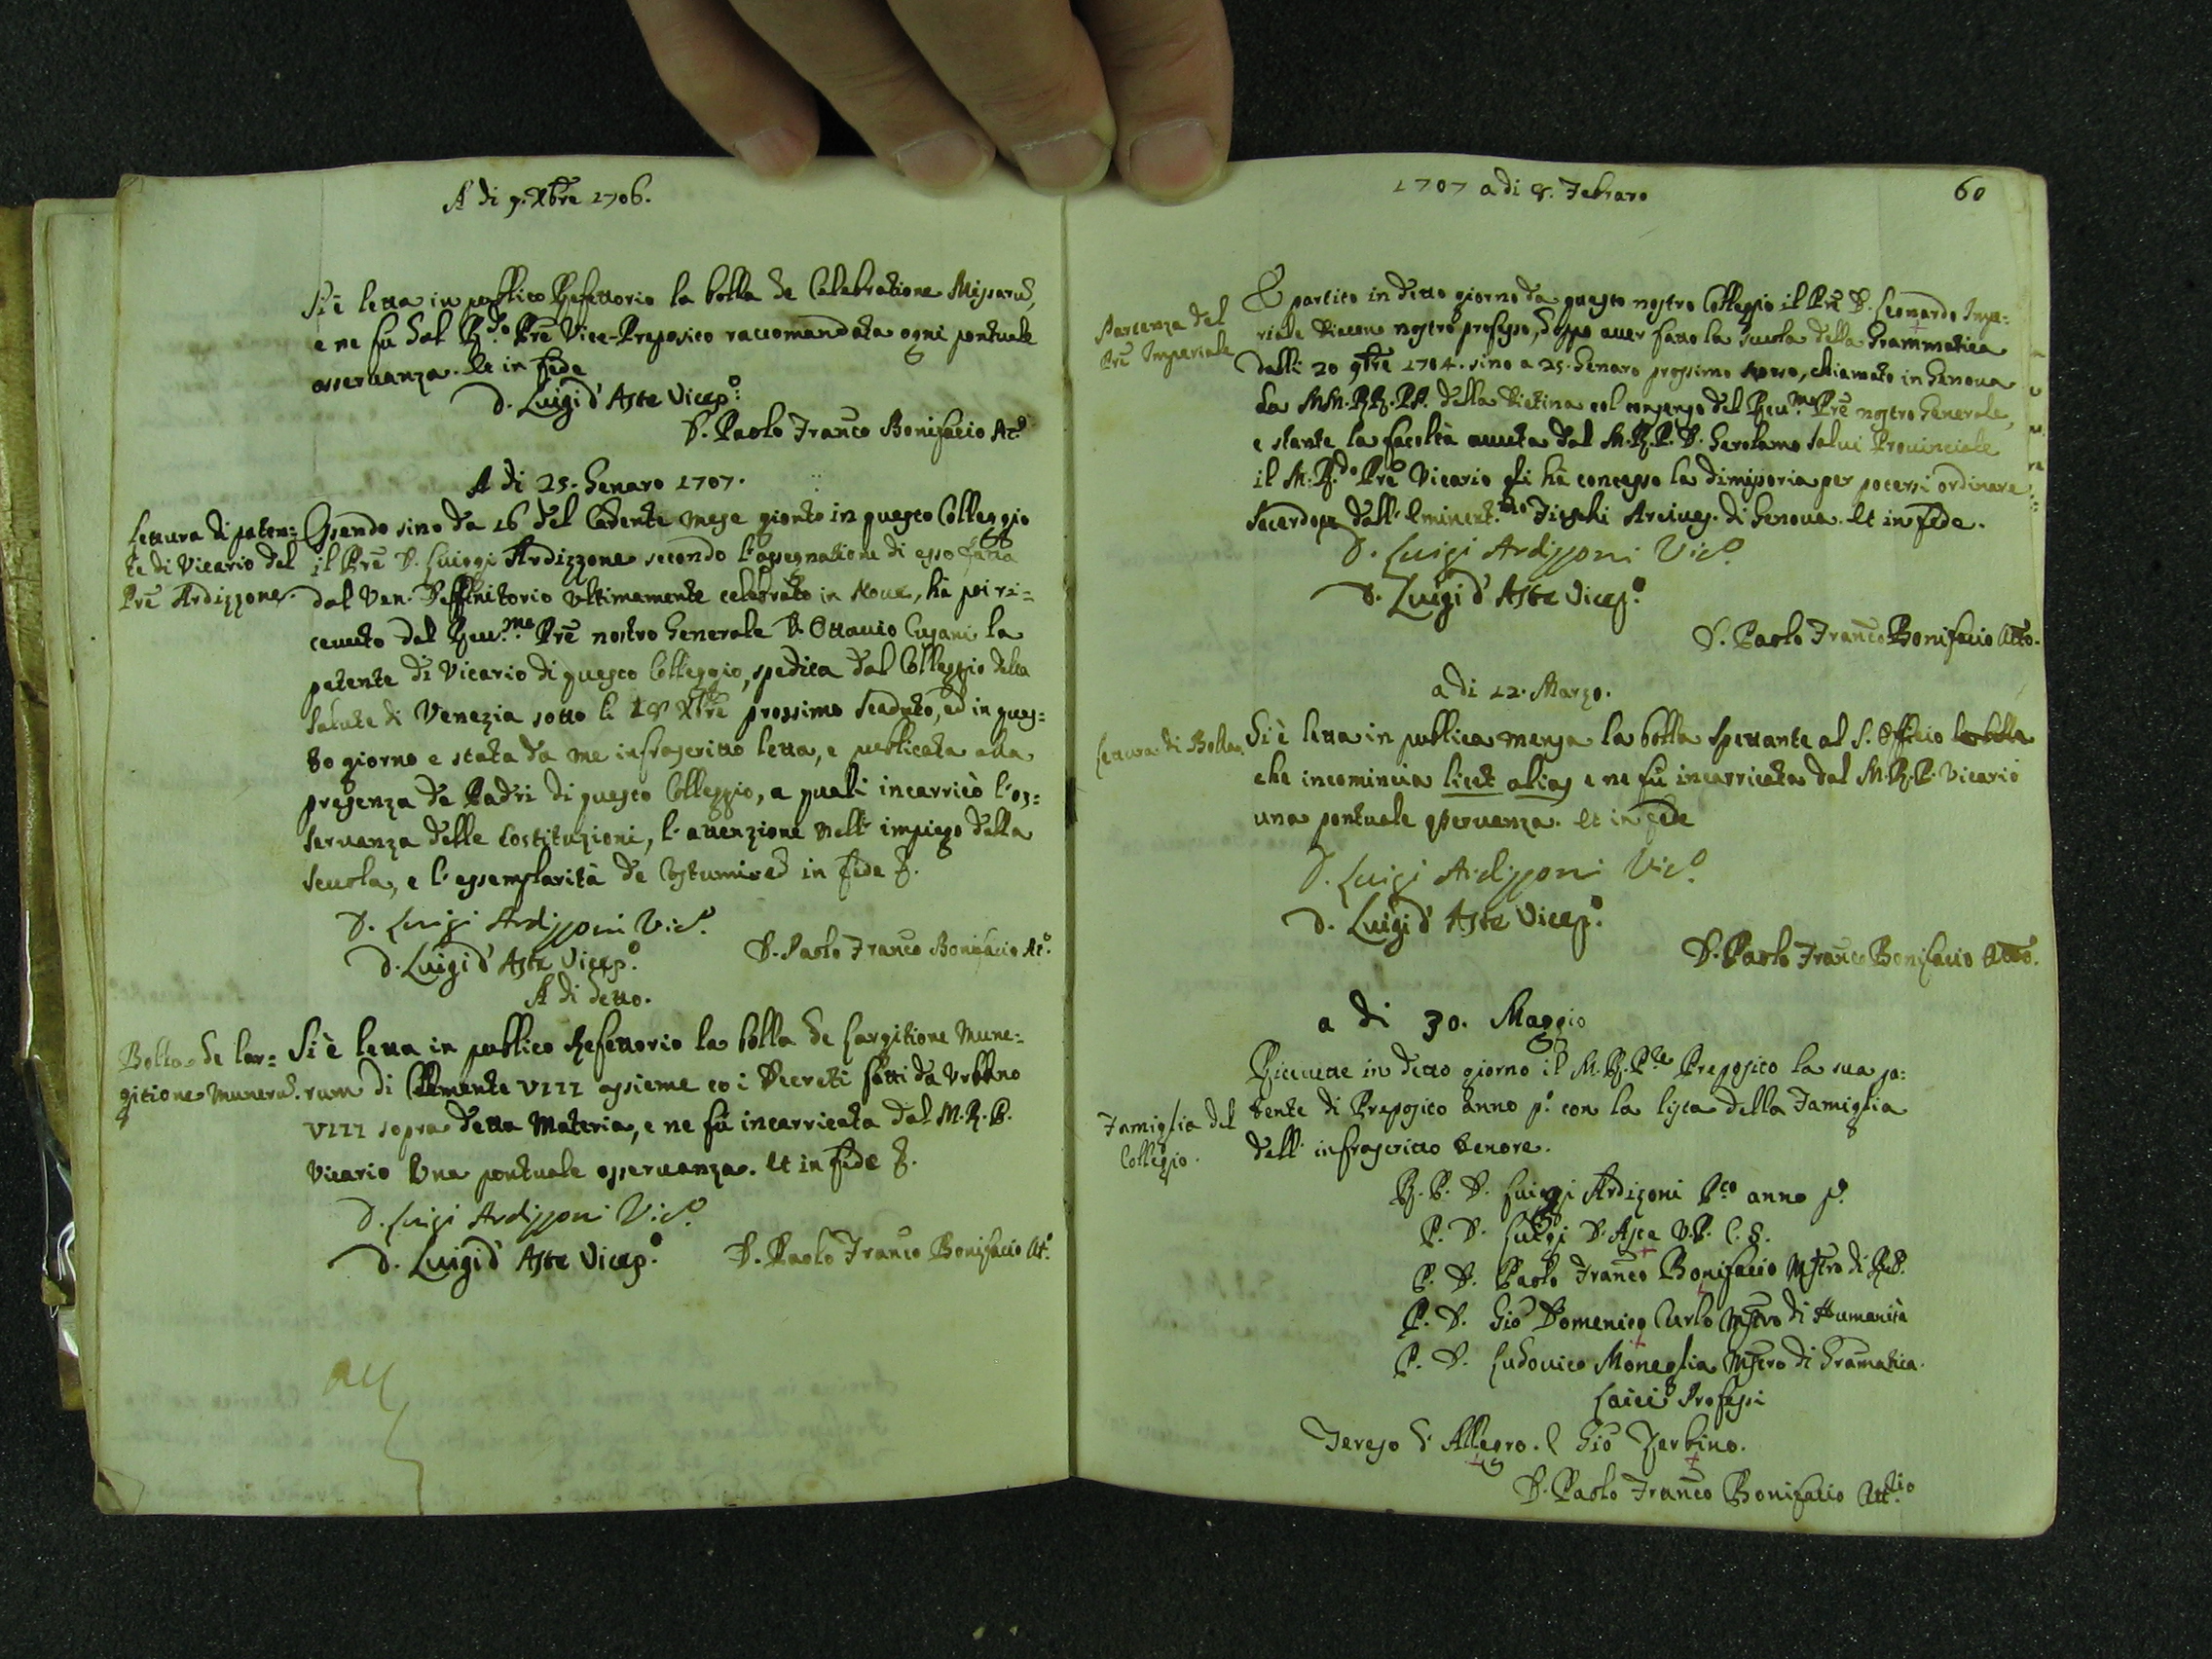 A di 9. Xbre 1706.
Si è letta in publico Refettorio la bolla de Celebratione Missarũ,
e ne fu dal R.do Pre Vice-Preposito raccomandata ogni pontuale
osservanza. Et in fede
D. Luigi d'Aste Vicep.o
D. Paolo Franco Bonifacio Att.o
A di 25. Genaro 1707.
Lettura di paten=
te di Vicario del
Pre Ardizzone.
Essendo sino da 16 del Cadente mese gionto in questo Colleggio
il Pre D. Luiggi Ardizzone secondo l'assegnatione di esso fatta
dal Ven. Deffinitorio Vltimamente celebrato in , hà poi ri=
ceuuto dal Reu.mo Pre nostro Generale D. Ottauio Cusani la
patente di Vicario di questo Colleggio, spedita dal Colleggio della
Salute di Venezia sotto li 18 Xbre prossimo Scaduto, ed in ques=
to giorno e stata da me infrascritto letta, e publicata alla
presenza de Padri di questo Colleggio, a quali incarricò l'os=
seruanza delle Costituzioni, l'attenzione nell' impiego della
Scuola, e l'essemplarità de Costumi ed in fede
D. Luigi Ardizzoni Vic.o
D. Luigi d'Aste Vicep.o
D. Paolo Franco Bonifacio At.o
A di detto.
Bolla de lar=
gitione Munerũ.
Si è letta in publico Refettorio la bolla de Largitione Mune=
rum di Clemente VIII assieme co i Decreti fatti da Vrbano
VIII sopra detta Materia, e ne fù incarricata dal M.R.P.
Vicario Vna pontuale osseruanza. Et in fede
D. Luigi Ardizzoni Vic.o
D. Luigi d'Aste Vicep.o
D. Paolo Franco Bonifacio At.o
1707 a di 8. Febraro
60
Partenza del
Pre Imperiale
E partito in detto giorno da questo nostro Colleggio il Pre D. Leonardo Impe=
riale Diacono nostro professo, doppo auer fatto la scuola della Grammatica
dalli 20 9bre 1704. sino a 25. Genaro prossimo , chiamato in Genoua
da MM.RR.PP. della col consenso del Reu.mo Pre nostro Generale,
e stante la facoltà auuta dal M.R.P.D. Gerolamo Salui Prouinciale
il M.R.do Pre Vicario gli hà concesso la dimissoria per potersi ordinare
Sacerdote dall' Eminent.mo Fieschi Arciues. di Genoua. Et in fede.
D. Luigi Ardizzoni Vic.o
D. Luigi d'Aste Vicep.o
D. Paolo Franco Bonifacio Atto.
a di 12. Marzo.
Lettura di Bolla.
Si è letta in publica mensa la bolla spettante al S. Officio la bolla
che incomincia licet alias e ne fù incarricata dal M.R.P. Vicario
una pontuale osseruanza. Et in fede
D. Luigi Ardizzoni Vic.o
D. Luigi d'Aste Vicep.o
D. Paolo Franco Bonifacio Atto.
a di 30. Maggio
Famiglia del
Collegio.
Riceuette in detto giorno il M.R.P.re Preposito la sua pa=
tente di Preposito anno p.o con la lista della Famiglia
dell' infrascritto tenore.
R.P.D. Luiggi Ardizoni P.to anno p.o
P. D. Luiggi D'Aste V.P. C.S.
P. D. Paolo Franco Bonifacio Mstro di Ret.
P. D. Gio Domenico Carlo Mstro di Humanità
P. D. Ludouico Moneglia Mstro di Gramatica.
Laici Professi
Tereso d'Allegro. e Gio Zerbino.
D. Paolo Franco Bonifacio Att.rio